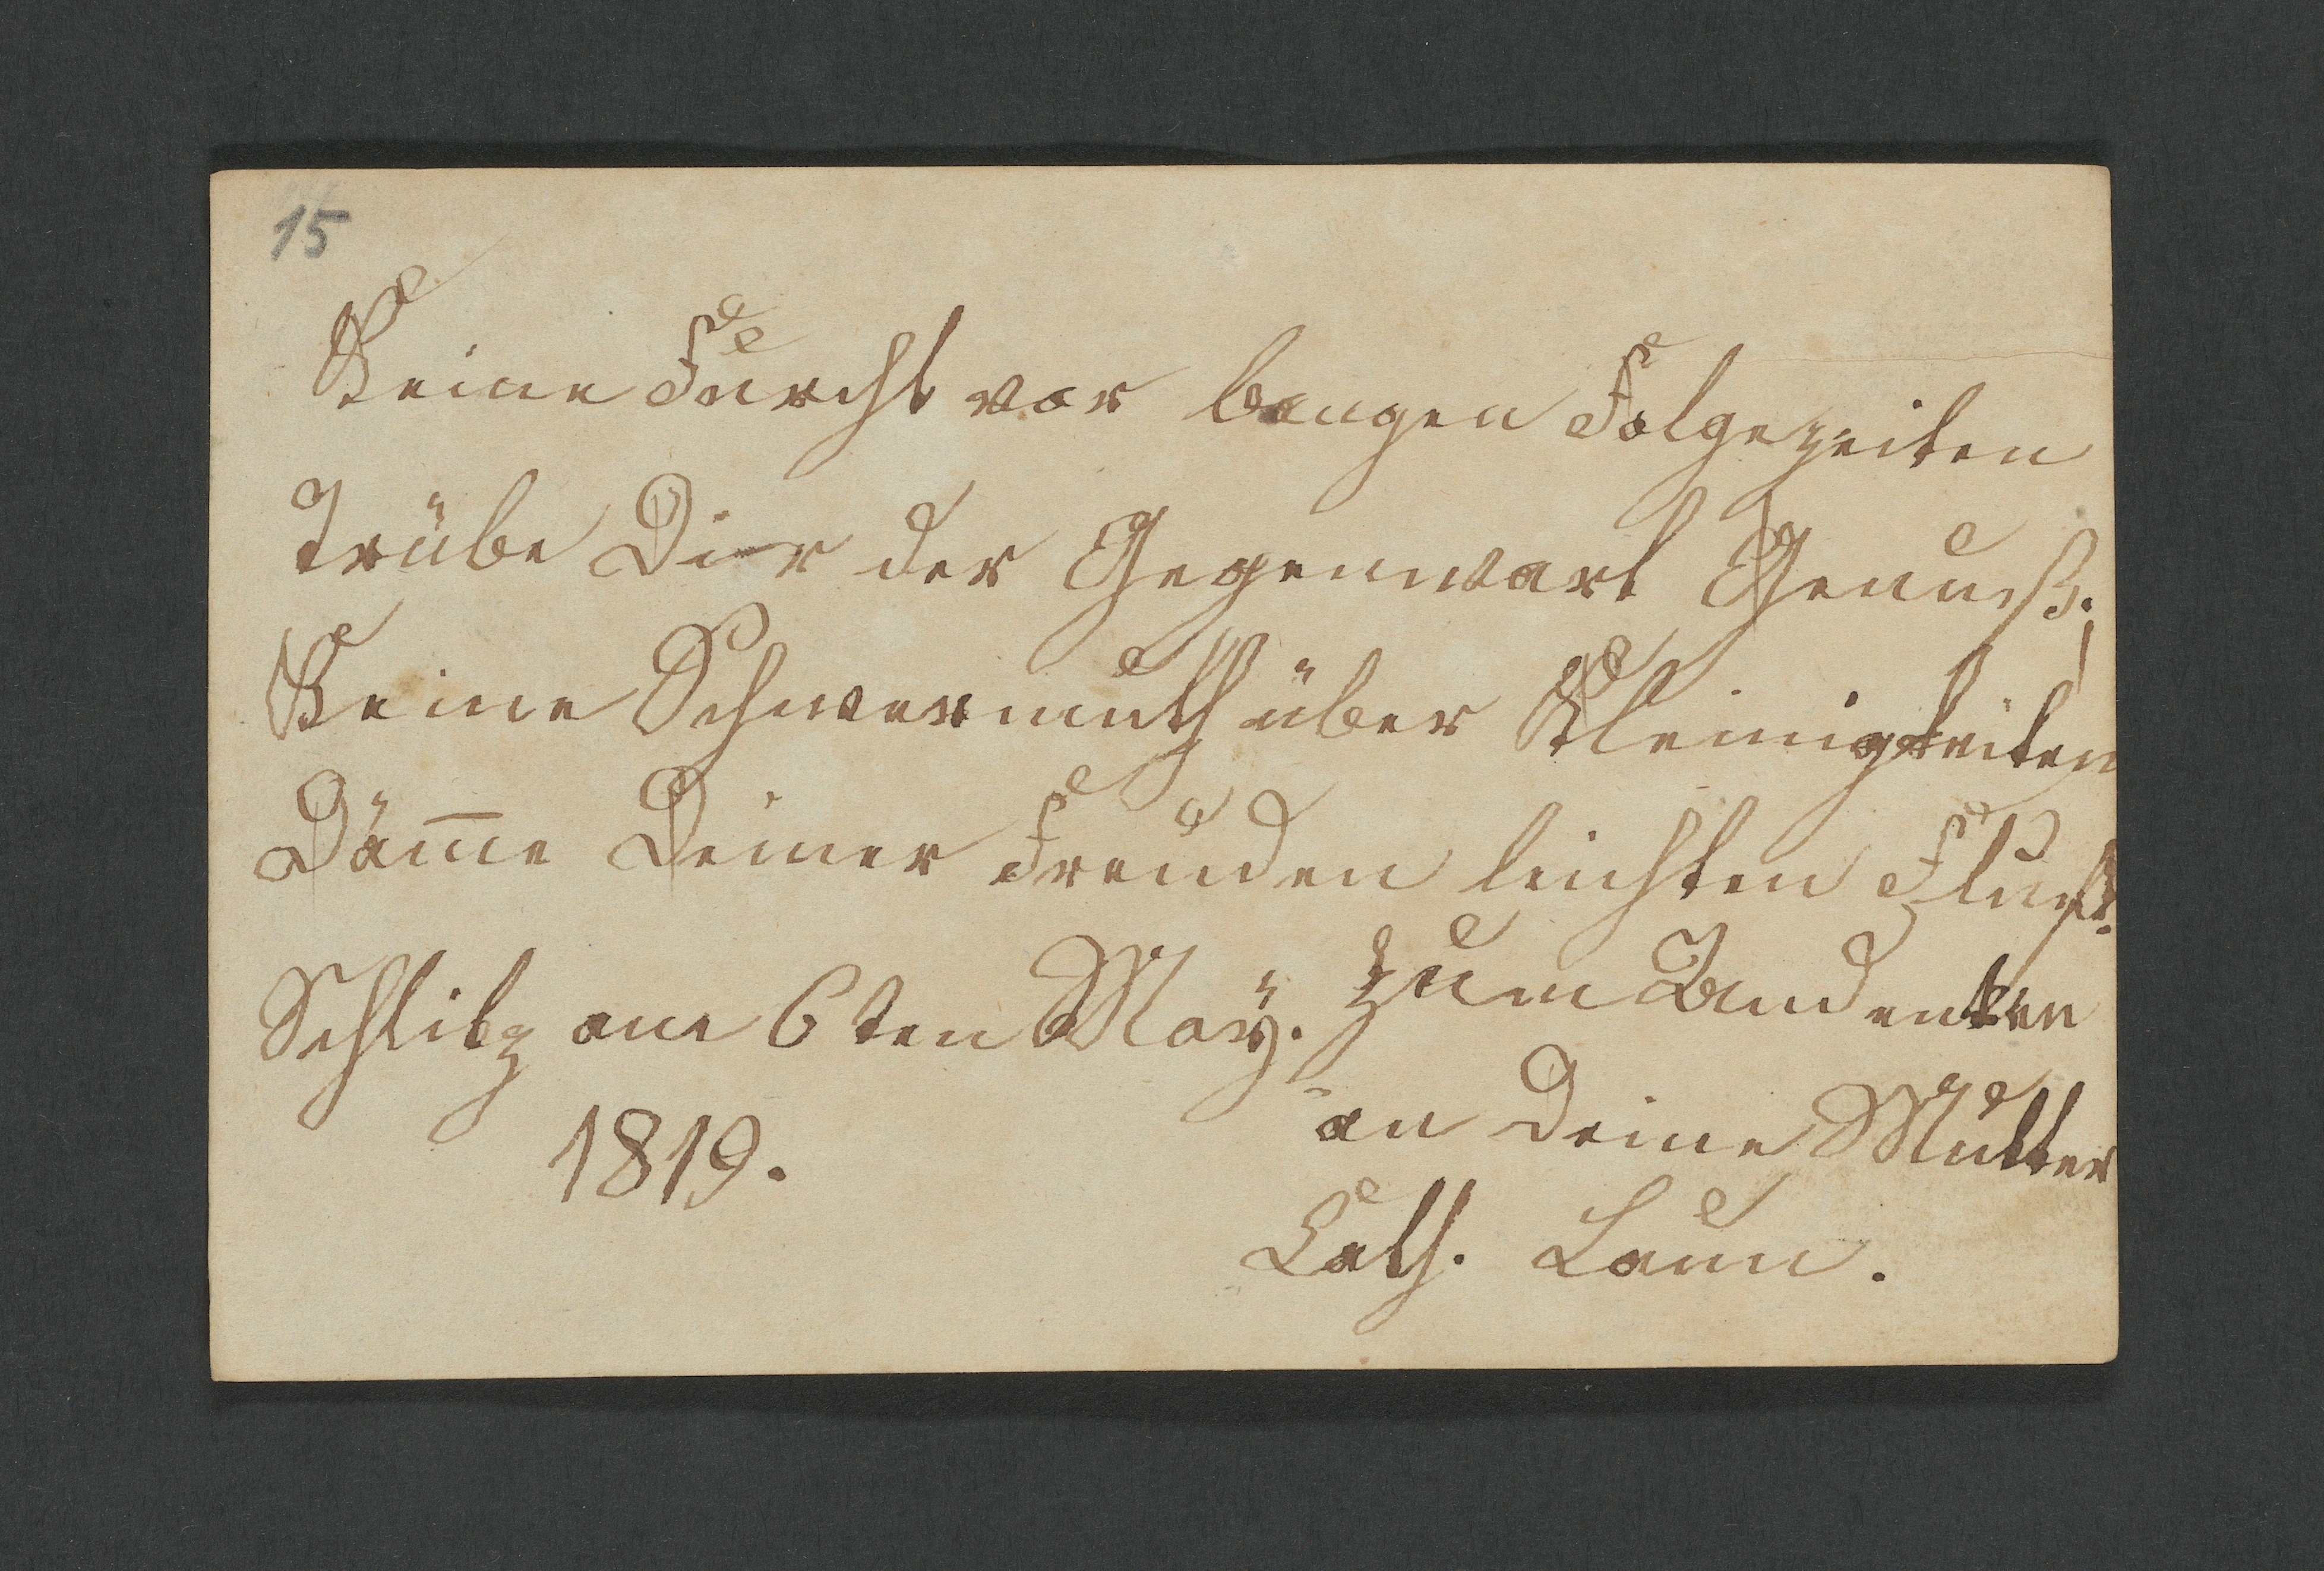 15
Keine Furcht vor bangen Folgezeiten
Trübe Dir der Gegenwart Genuß;
Keine Schwermuth über Kleinigkeiten
Däm̅e Deiner Freuden leichten Fluß.
Schlitz am 6ten Maÿ. Zum Andenken
1819. an Deine Mutter
Cath. Laun.